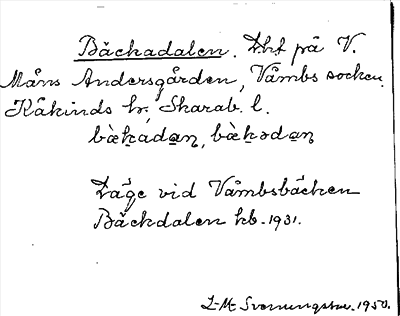 Bäckadalen. Lht på V.
Måns Andersgården, Våmbs socken.
Kåkinds hr, Skarab. l.
bäḵàda̱n, bàḵəda̱n
Läge vid Våmbsbäcken
Bäckdalen kb. 1931.
L-M- Svenungsson. 1950.